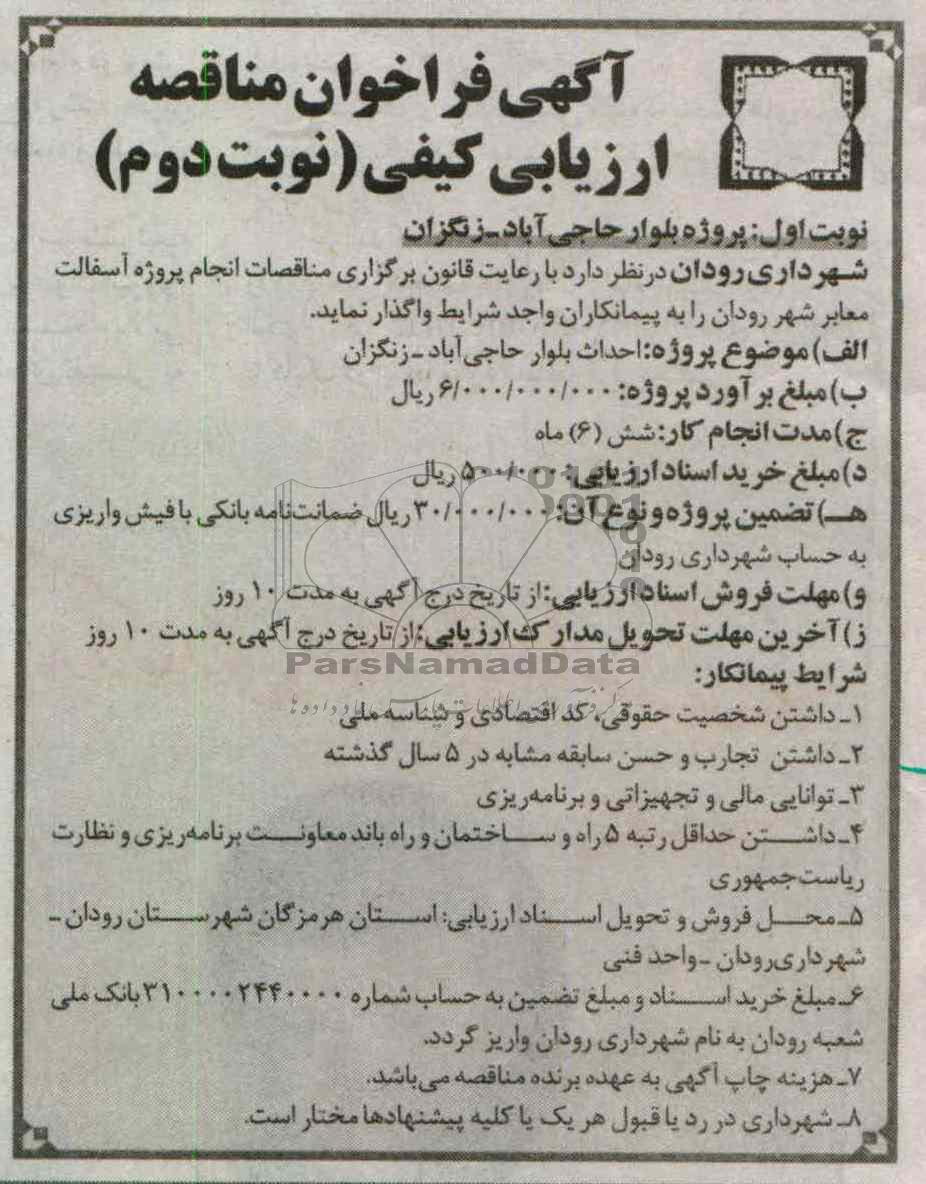 آگهی فراخوان مناقصه
ارزیابی کیفی (نوبت دوم)
نوبت اول: پروژه بلوار حاجی آباد-زنگزان
شهرداری رودان درنظر دارد با رعایت قانون برگزاری مناقصات انجام پروژه آسفالت
معابر شهر رودان را به پیمانکاران واجد شرایط واگذار نماید.
الف) موضوع پروژه: احداث بلوار حاجی آباد - زنگزان
ب) مبلغ برآورد پروژه: ۶/۰۰۰/۰۰۰/۰۰۰ ریال
ج) مدت انجام کار: شش (۶) ماه
د) مبلغ خرید اسناد ارزیابی: ۵۰۰/۰۰۰ ریال
هـ) تضمین پروژه و نوع آن: ۳۰/۰۰۰/۰۰۰ ریال ضمانت‌نامه بانکی با فیش واریزی
به حساب شهرداری رودان
و) مهلت فروش اسناد ارزیابی: از تاریخ درج آگهی به مدت ۱۰ روز
ز) آخرین مهلت تحویل مدارک ارزیابی: از تاریخ درج آگهی به مدت ۱۰ روز
ParsNamadData
شرایط پیمانکار:
۱- داشتن شخصیت حقوقی، کد اقتصادی و شناسه ملی
۲- داشتن تجارب و حسن سابقه مشابه در ۵ سال گذشته
۳- توانایی مالی و تجهیزاتی و برنامه‌ریزی
۴- داشتن حداقل رتبه ۵ راه و ساختمان و راه باند معاونت برنامه‌ریزی و نظارت
ریاست‌جمهوری
۵- محل فروش و تحویل اسناد ارزیابی: استان هرمزگان شهرستان رودان -
شهرداری‌رودان -واحد فنی
۶- مبلغ خرید اسناد و مبلغ تضمین به حساب شماره ۳۱۰۰۰۰۲۴۴۰۰۰۰ بانک ملی
شعبه رودان به نام شهرداری رودان واریز گردد.
۷- هزینه چاپ آگهی به عهده برنده مناقصه می‌باشد.
۸- شهرداری در رد یا قبول هر یک یا کلیه پیشنهادها مختار است.